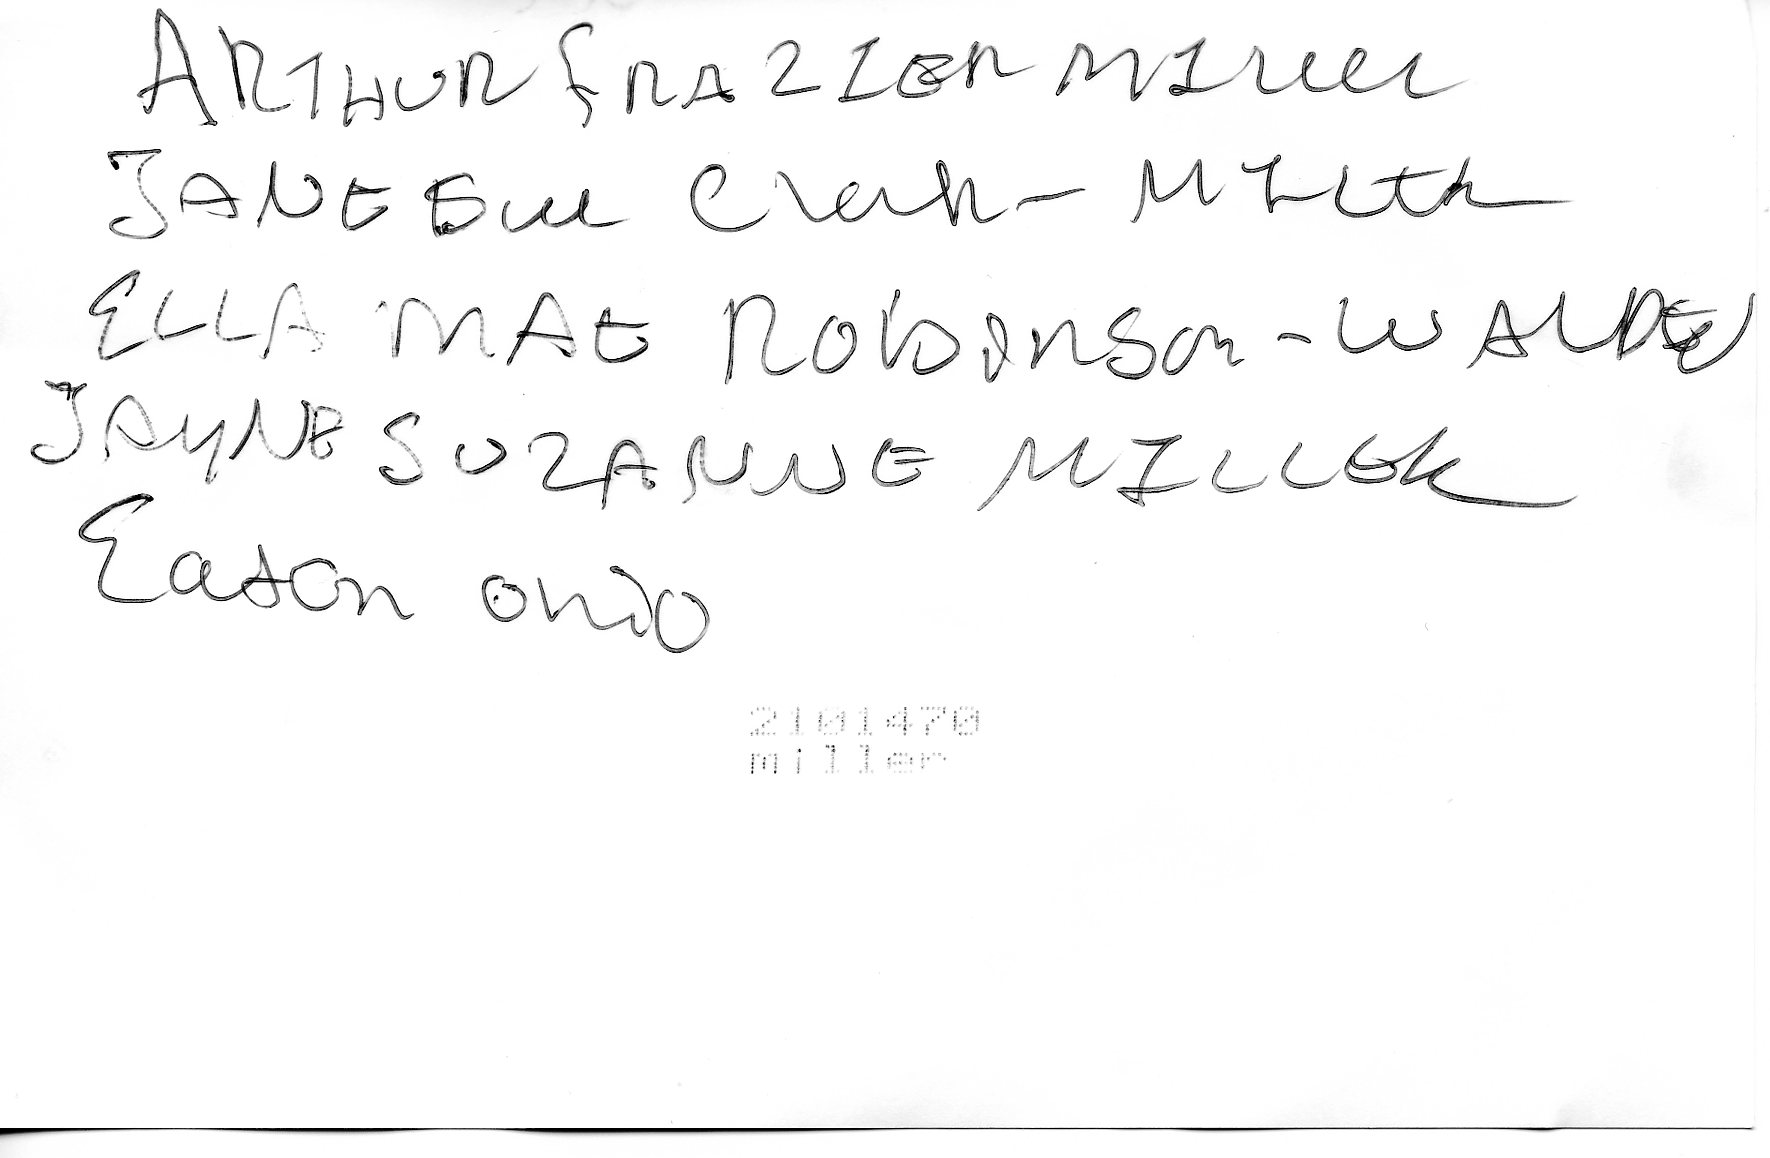 ARTHUR FRAZIER MILLER
JANE Sue Clark - MILLER
ELLA MAE Robinson - WALDEN
JAYNE SUZANNE MILLER
Eaton Ohio
2101470
miller